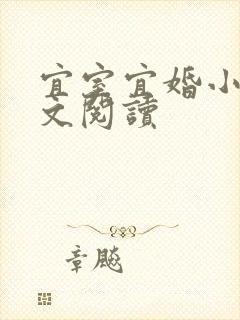 宜室宜婚小
文閱讀
章飈